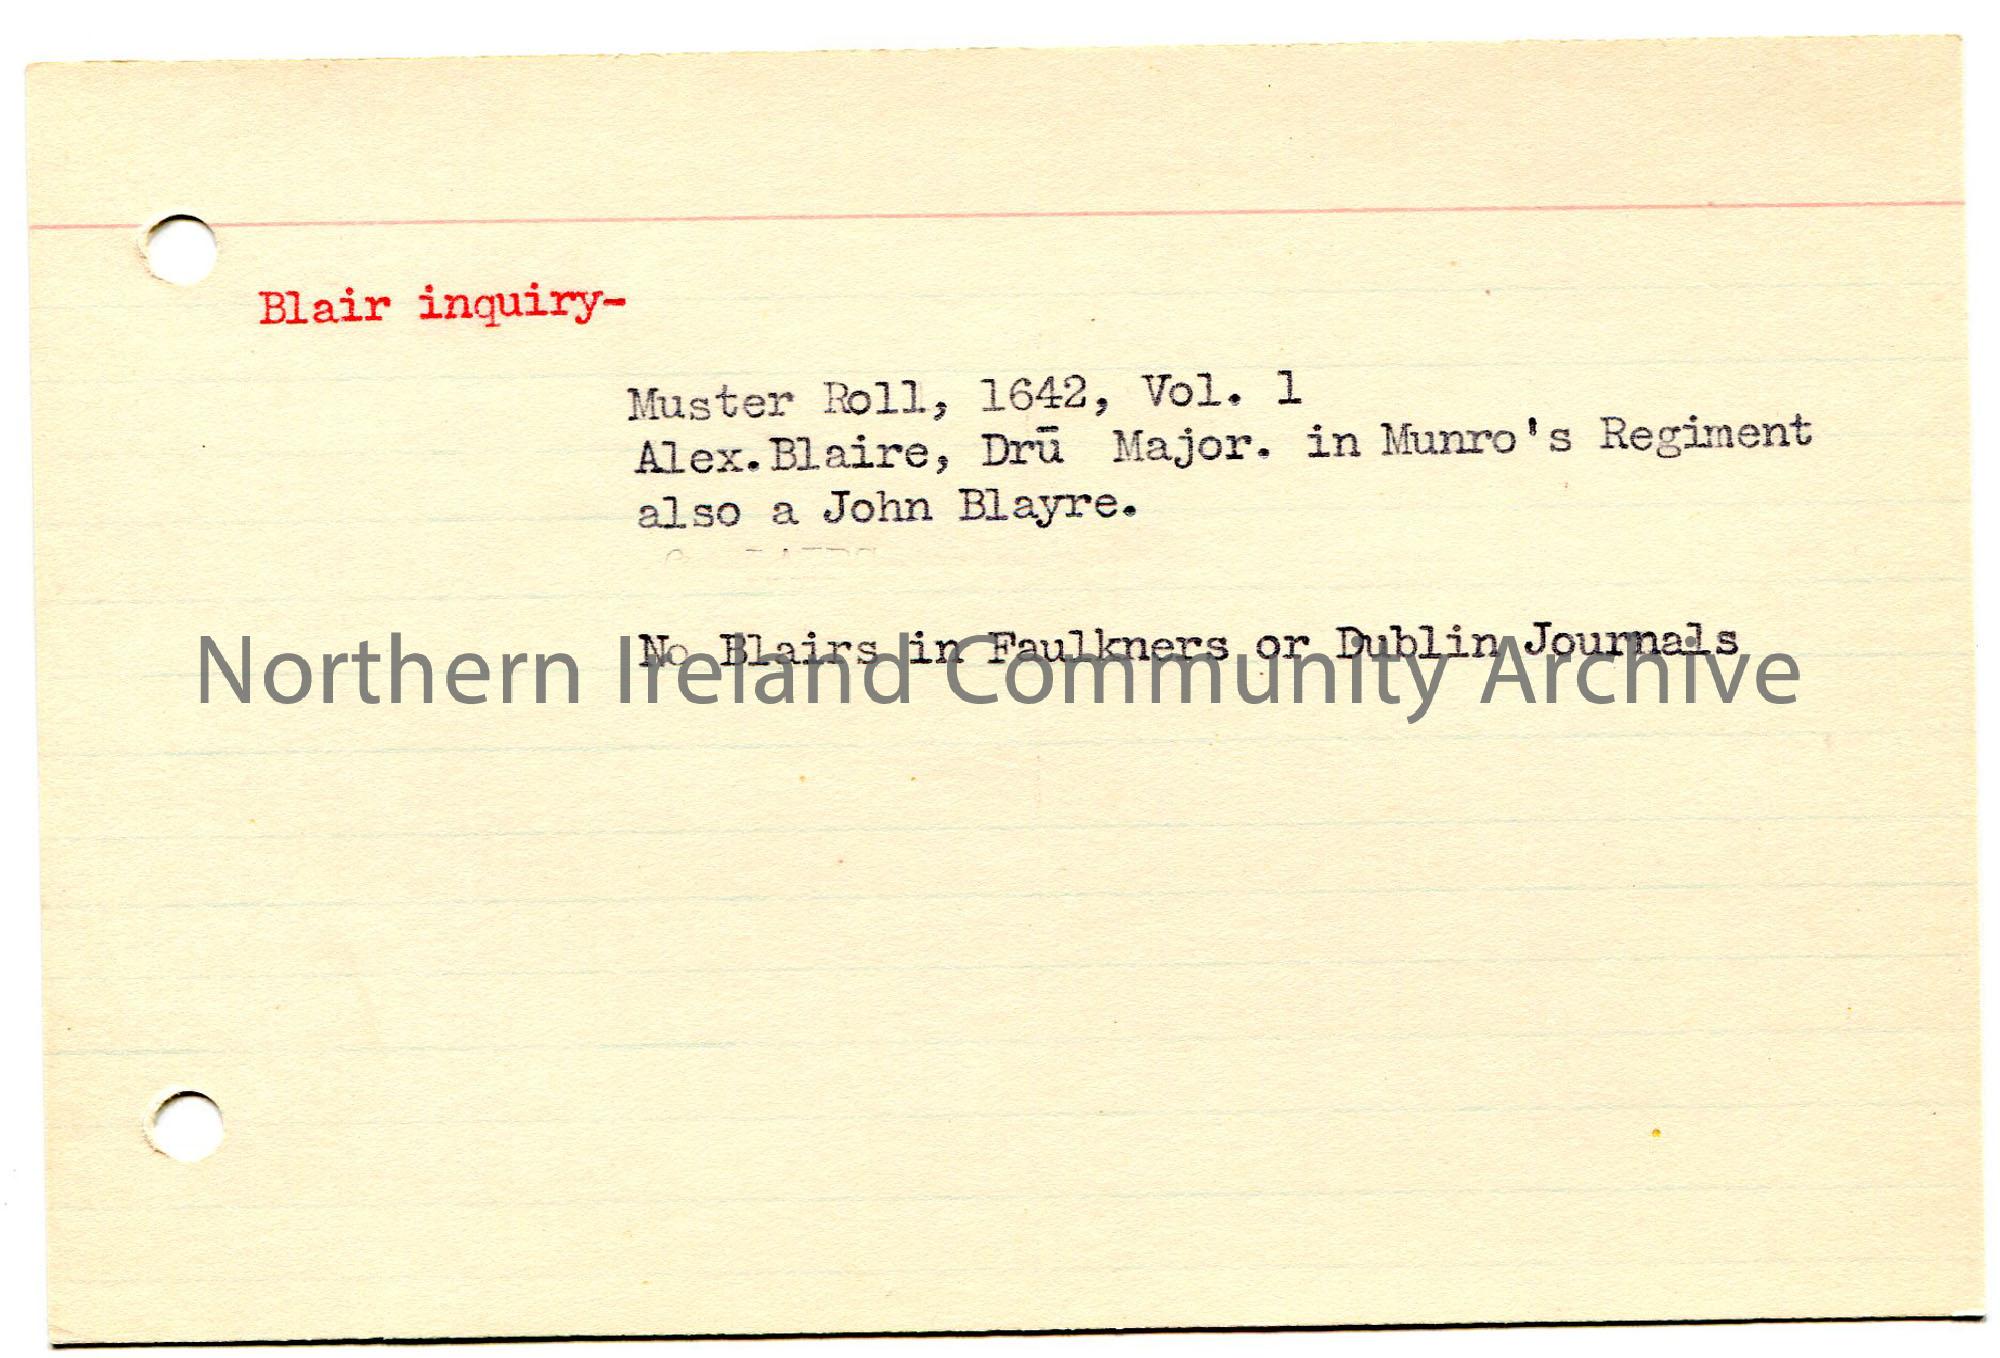 Blair inquiry-
Muster Roll, 1642, Vol. 1
Alex.Blaire, Drū Major. in Munro's Regiment
also a John Blayre.
No Blairs in Faulkners or Dublin Journals
Northern Ireland Community Archive